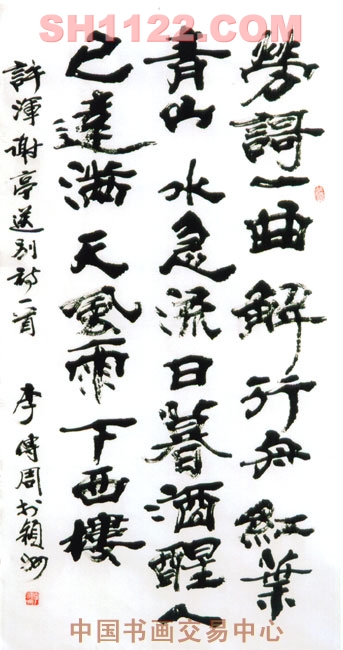 SH1122.COM
勞謌一曲解行舟紅葉
青山水急流日暮酒醒人
已遠滿天風雨下西樓
許渾謝亭送别詩一首 李傳周书潁州
中国书画交易中心